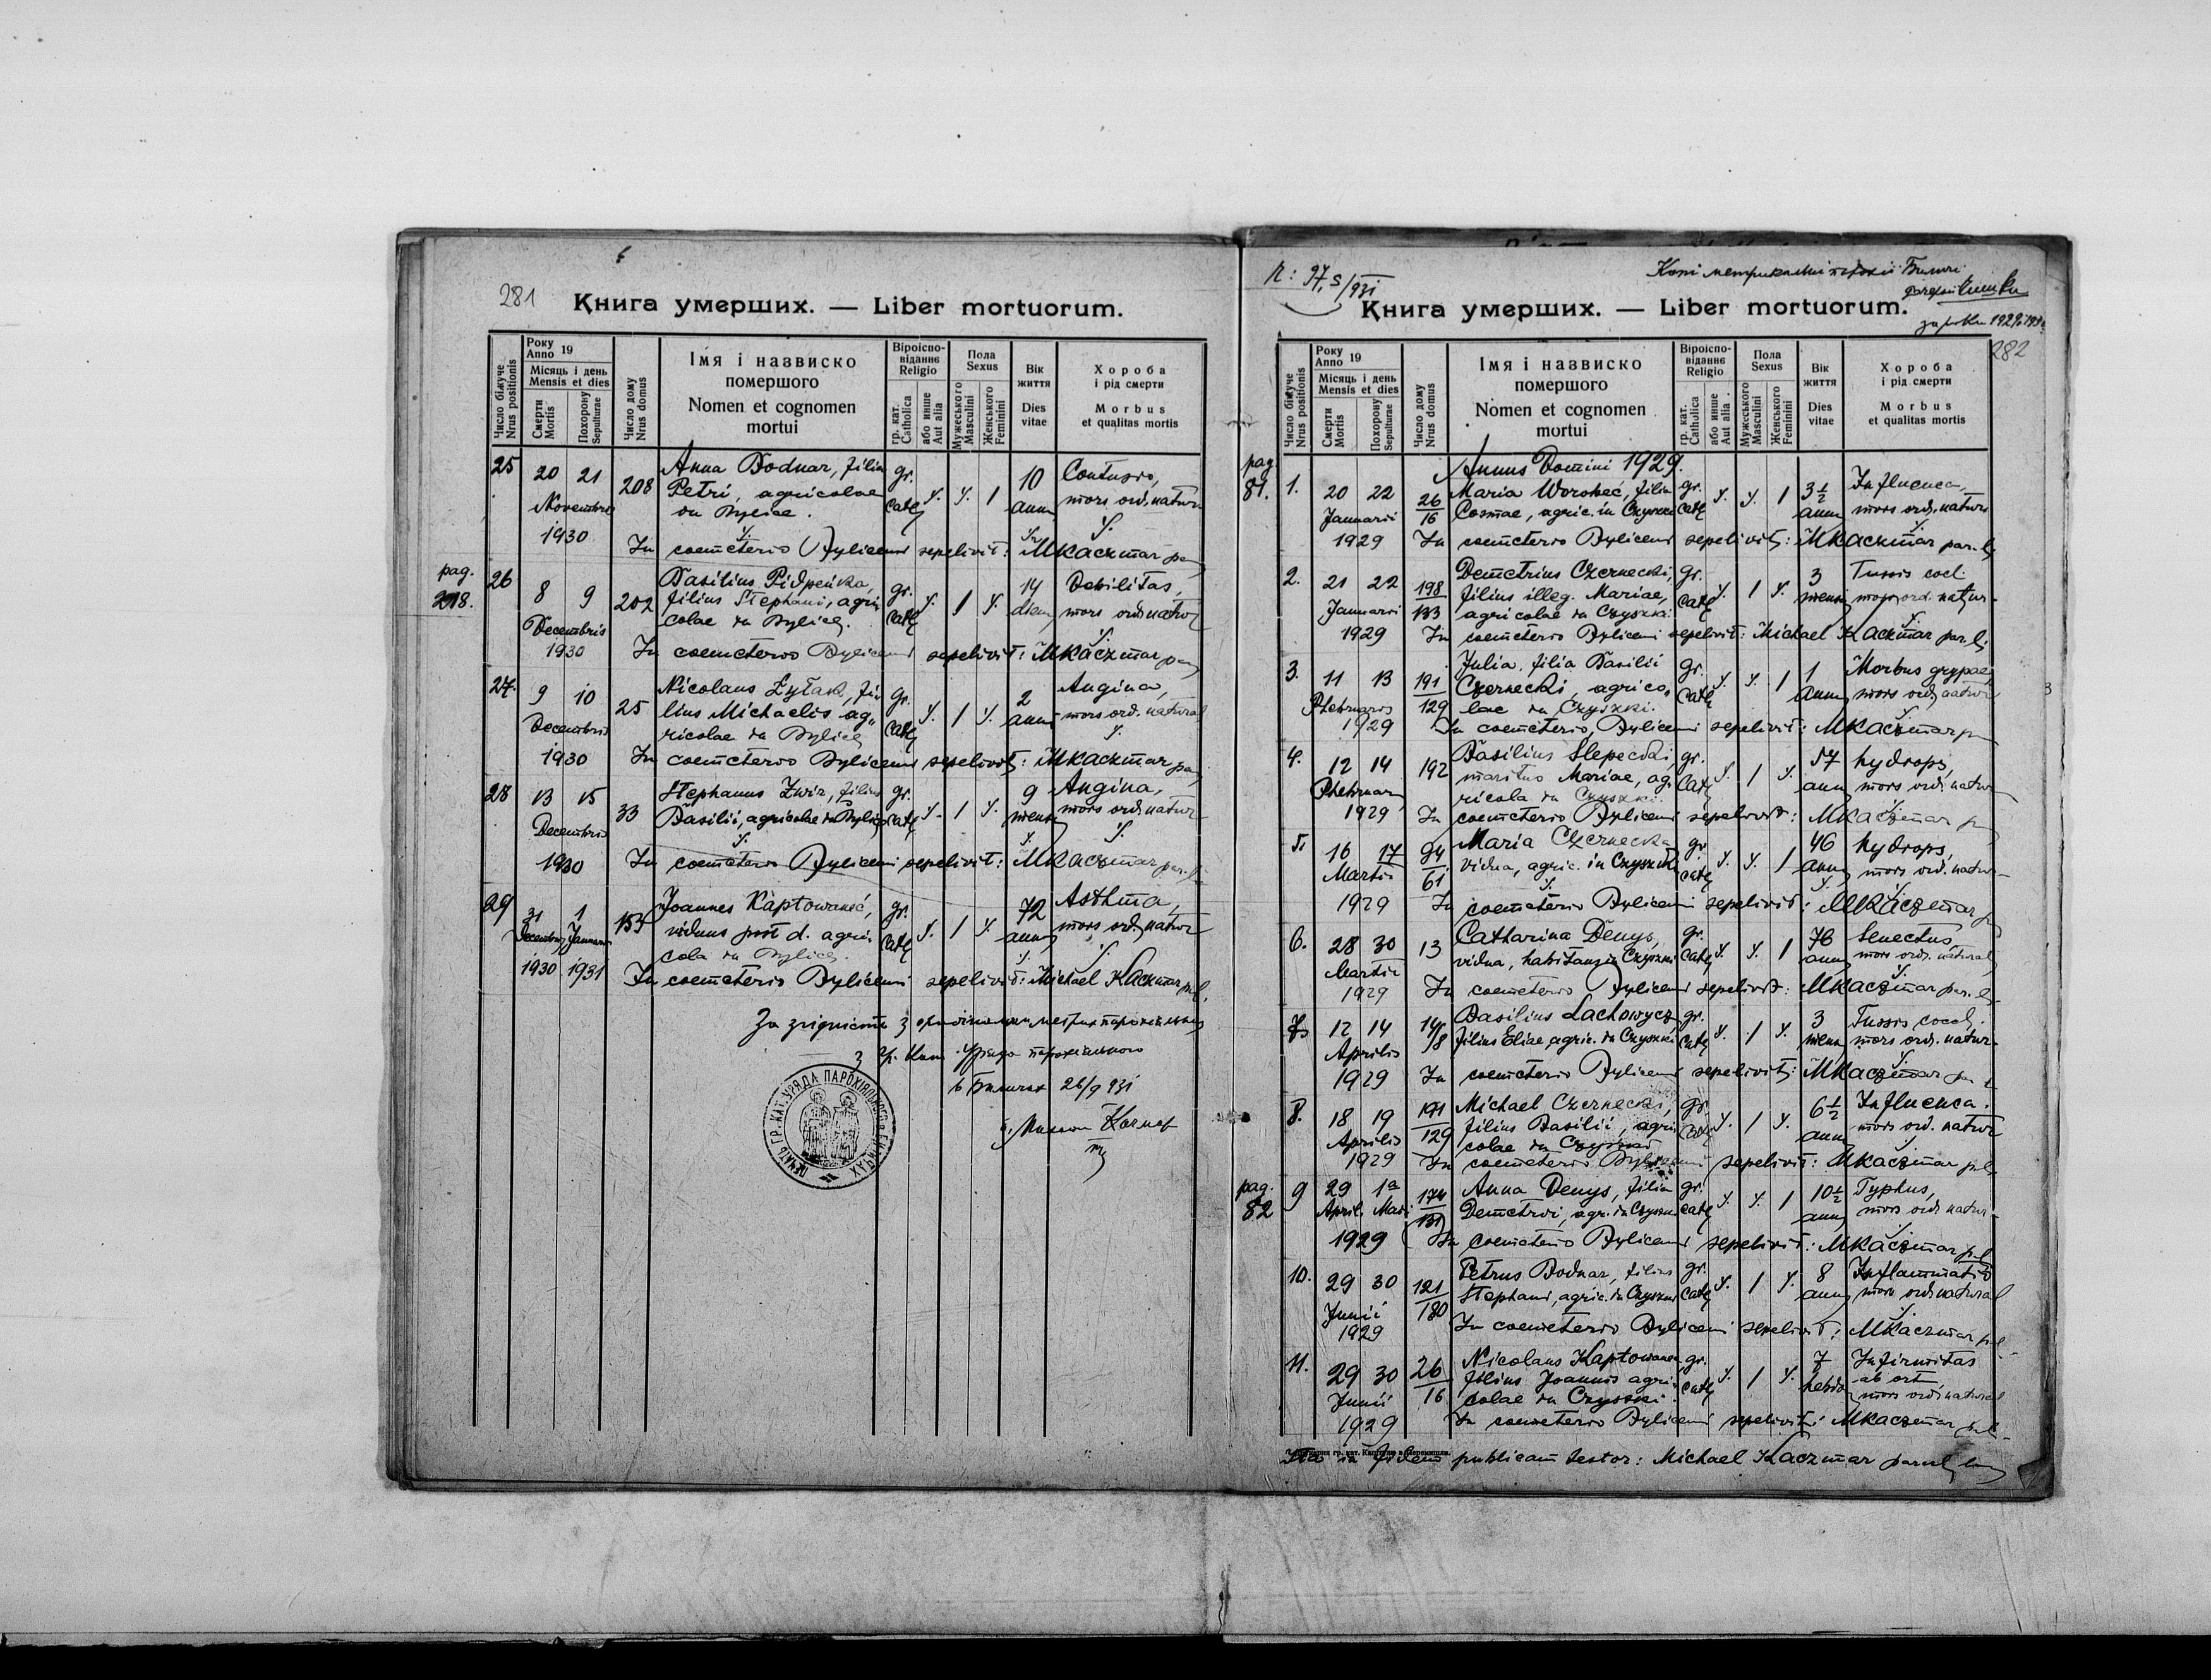 281
Книга умерших. — Liber mortuorum.
Число біжуче
Nrus positionis
Року
Anno 19
Місяць і день
Mensis et dies
Смерти
Mortis
Похорону
Sepulturae
Число дому
Nrus domus
Імя і назвиско
помершого
Nomen et cognomen
mortui
Віроіспо-
віданнє
Religio
гр. кат.
Catholica
або инше
Aut alia
Пола
Sexus
Мужеського
Masculini
Женського
Feminini
Вік
життя
Dies
vitae
Хороба
і рід смерти
Morbus
et qualitas mortis
25 20 21 208 Anna Bodnar, filia gr. 1 10 Contusio,
Novembris Petri, agricolae cath ann mors ord. natur
in Bylice.
1930 In coemeterio Bylicensi sepelivit: MKaczmar
pag. 218.
26 8 9 202 Basilius Pidpeńka, gr. 1 14 Debilitas,
filius Stephani, agri- cath dierum mors ord natur
Decembris colae in Bylice.
1930 In coemeterio Bylicensi sepelivit: MKaczmar
27. 9 10 25 Nicolaus Żyłak, fi- gr. 1 2 Angina,
lius Michaelis ag- cath anni mors ord. natural
Decembris ricolae in Bylice
1930 In coemeterio Bylicensi sepelivit: MKaczmar
28 13 15 33 Stephanus Zwir, filius gr. 1 9 Angina,
Decembris Basilii, agricolae in Bylice cath mens mors ord. natur
1930 In coemeterio Bylicensi sepelivit: MKaczmar
29 31 1 Joannes Kaptowaneć, gr. 1 72 Asthma,
Decembris Januarii viduus post d. agri- cath ann mors ord. natur
cola in Bylice.
1930 1931 In coemeterio Bylicensi sepelivit: Michael Kaczmar
За згідність з
з гр. кат. Уряду парохіяльного
в Биличах 26/9 931
ПЕЧАТЬ ГР. КАТ. УРЯДА ПАРОХІЯЛЬНОГО в БИЛИЧАХ
N: 97, S/931
Копі метрикальні парохії Биличі
за роки 1929 і 1930
282
Книга умерших. — Liber mortuorum.
Число біжуче
Nrus positionis
Року
Anno 19
Місяць і день
Mensis et dies
Смерти
Mortis
Похорону
Sepulturae
Число дому
Nrus domus
Імя і назвиско
помершого
Nomen et cognomen
mortui
Віроіспо-
віданнє
Religio
гр. кат.
Catholica
або инше
Aut alia
Пола
Sexus
Мужеського
Masculini
Женського
Feminini
Вік
життя
Dies
vitae
Хороба
і рід смерти
Morbus
et qualitas mortis
pag. 81.
Annus Domini 1929.
1. 20 22 26/16 Maria Worobeć, filia gr. 1 3 1/2 Influenca,
Januarii Cosmae, agric. in Czyszki cath anni mors ord. natur
1929 In coemeterio Bylicensi sepelivit: MKaczmar par.
2. 21 22 198/133 Demetrius Czernecki, gr. 1 3 Tussis
Januarii filius illeg. Mariae, cath mens mors ord. natur-
agricolae in Czyszki.
1929 In coemeterio Bylicensi sepelivit: Michael Kaczmar par.
3. 11 13 191/129 Julia, filia Basilii gr. 1 1 Morbus
Czernecki, agrico- cath anni mors ord natur
Phebruaris lae in Czyszki.
1929 In coemeterio, Bylicensi sepelivit: MKaczmar
4. 12 14 192 Basilius Slepecki, gr. 1 57 hydrops,
maritus Mariae, ag- cath ann mors ord. natur
ricola in Czyszki.
1929 In coemeterio Bylicensi sepelivit: MKaczmar
5. 16 17 94/61 Maria Czernecka gr. 1 46 hydrops,
Martii vidua, agric. in Czyszki cath ann mors ord. natur-
1929 In coemeterio Bylicensi sepelivit: MKaczmar
6. 28 30 13 Catharina Denys, gr. 1 76 Senectus,
Martii vidua, habitans in Czyszki cath ann mors ord. natural
1929 In coemeterio Bylicensi sepelivit: MKaczmar par.
7. 12 14 14/8 Basilius Lachowycz gr. 1 3 Tussis
Aprilis filius Eliae, agric. in Czyszki cath mens mors ord. natur-
1929 In coemeterio Bylicensi sepelivit: MKaczmar
8. 18 19 191/129 Michael Czernecki, gr. 1 6 1/2 Influenca.
Aprilis filius Basilii, agri- cath ann mors ord. natur
colae in Czyszki
1929 In coemeterio Bylicensi sepelivit: MKaczmar
pag. 82
9 29 1a Anna Denys, filia gr. 1 10 1/2 Typhus,
April. Maii Demetrii, agr. in Czyszki cath ann mors ord. natur-
1929 In coemeterio Bylicensi sepelivit: MKaczmar
10. 29 30 121/180 Petrus Bodnar, filius gr. 1 8 Inflammatio
Junii Stephani, agric. in Czyszki cath ann mors ord natural
1929 In coemeterio Bylicensi sepelivit: MKaczmar
11. 29 30 26/16 Nicolaus Kaptowaneć, gr. 1 7 Infirmitas
filius Joannis agri- cath hebdo ab ort
Junii colae in Czyszki. mors ord natural
1929 In coemeterio Bylicensi sepelivit: MKaczmar
Ita in fidem publicam testor: Michael Kaczmar